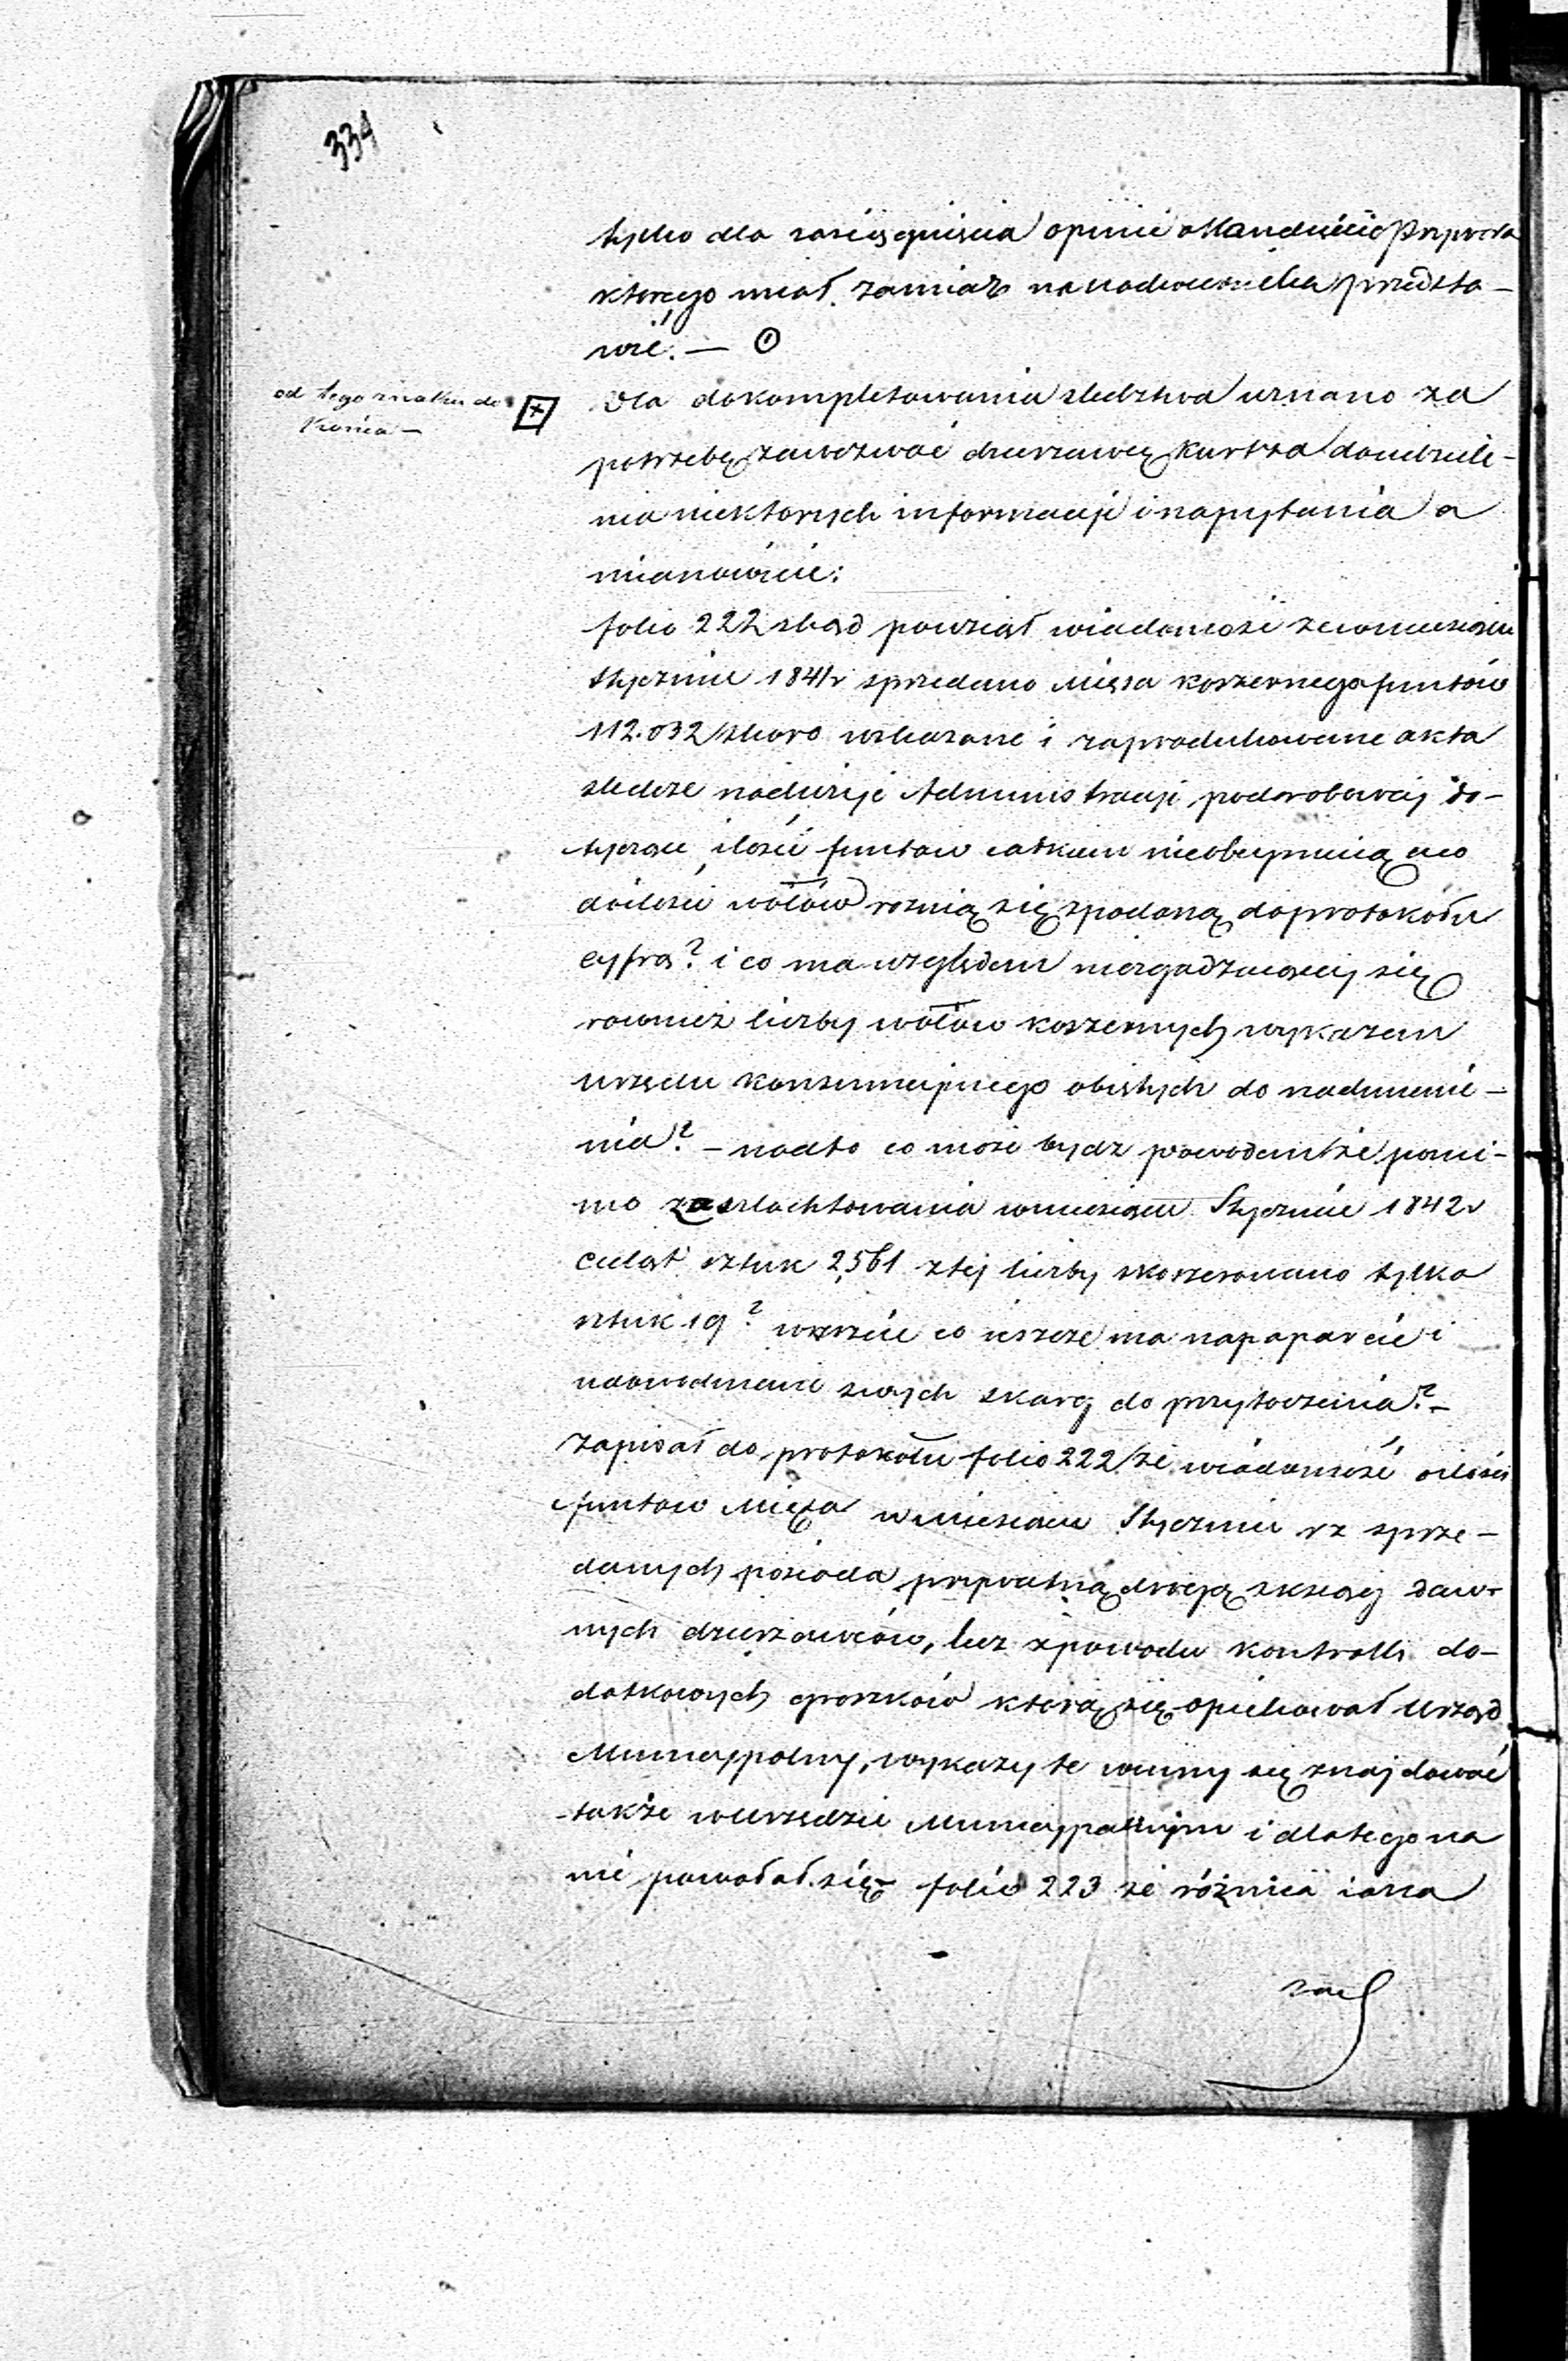 334
tylko dla zasięgnięcia opinii o Handlu
ktorego miał zamiar na nadwornika przedsta-
wić. —
od tego znaku do
Konca —
Dla dokompletowania sledztwa uznano za
potrzebę zawezwać dzierzawcę Kurtza do udziele-
nia niektorych informacji i zapytania a
mianowicie:
folio 222 skąd powziął wiadomość ze w miesiącu
Styczniu 1841 r sprzedano Mięsa koszernego funtów
112.032 skoro wskazane i zaprodukowane akta
sledcze nadużyć Administracji podrobowej do-
tyczące ilości funtow całkiem nieobeymują a co
do ilości wołów roznią się z podaną do protokołu
cyfrą? i co ma względem niezgadzaiącej się
rownież liczby wołów koszernych wykazem
urzędu konsumcyjnego obiętych do nadmienie-
nia? — nadto co może bydz powodem że pomi-
mo zaszlachtowania w miesiącu Styczniu 1842 r
Cieląt sztuk 2,561 z tej liczby skoszerowano tylko
sztuk 19? wreszcie co ieszcze ma na poparcie i
udowodnienie swych skarg do przytoczenia? —
Zapisał do protokołu folio 222 że wiadomość o ilości
funtow Mięsa w Miesiącu Styczniu rz sprze-
danych posiada prywatną drogą z ksiąg daw-
nych dzierzawców, lecz z powodu kontrolli do-
datkowych groszków którą się opiekował Urząd
Municypalny, wykazy te winny się znajdować
także w Urzędzie Municypalnym i dlatego na
nie powołał się folio 223 że różnica iaka
zac